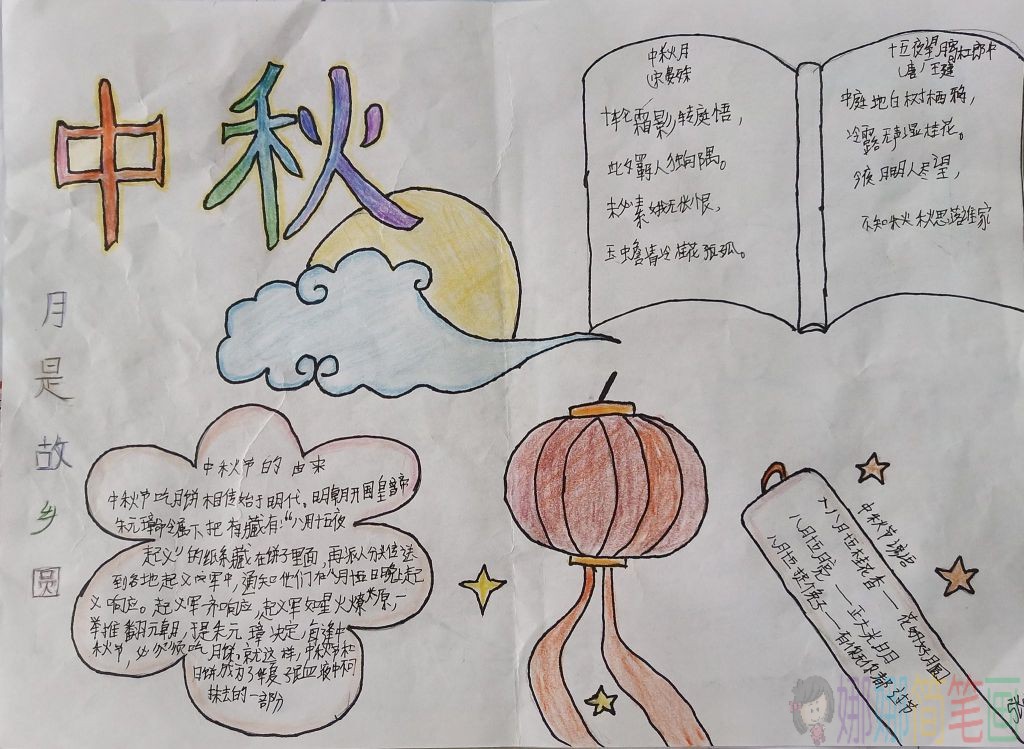 中秋
月是故乡圆
中秋月
(宋晏殊
十轮霜影转庭梧,
此夕羁人独向隅。
未必素娥无怅恨,
玉蟾清冷桂花孤。
十五夜望月寄杜郎中
(唐)王建
中庭地白树栖鸦,
冷露无声湿桂花。
今夜月明人尽望,
不知秋思落谁家
中秋节的由来
中秋节吃月饼相传始于明代。明朝开国皇帝
朱元璋命令属下把有藏有:“八月十五夜
起义”的纸条藏在饼子里面,再派人分头传送
到各地起义军中,通知他们在八月十五日晚上起
义响应。起义军齐响应,起义军如星火燎原,一
举推翻元朝,于是朱元璋决定,每逢中
秋节,必须吃月饼,就这样,中秋节和
月饼成为了华夏
抹去的一部分
中秋节谚语
八月十五桂花香——花好月圆
八月十五月亮——正大光明
八月十五捉个兔子——有你过节无你都过节
娜娜简笔画